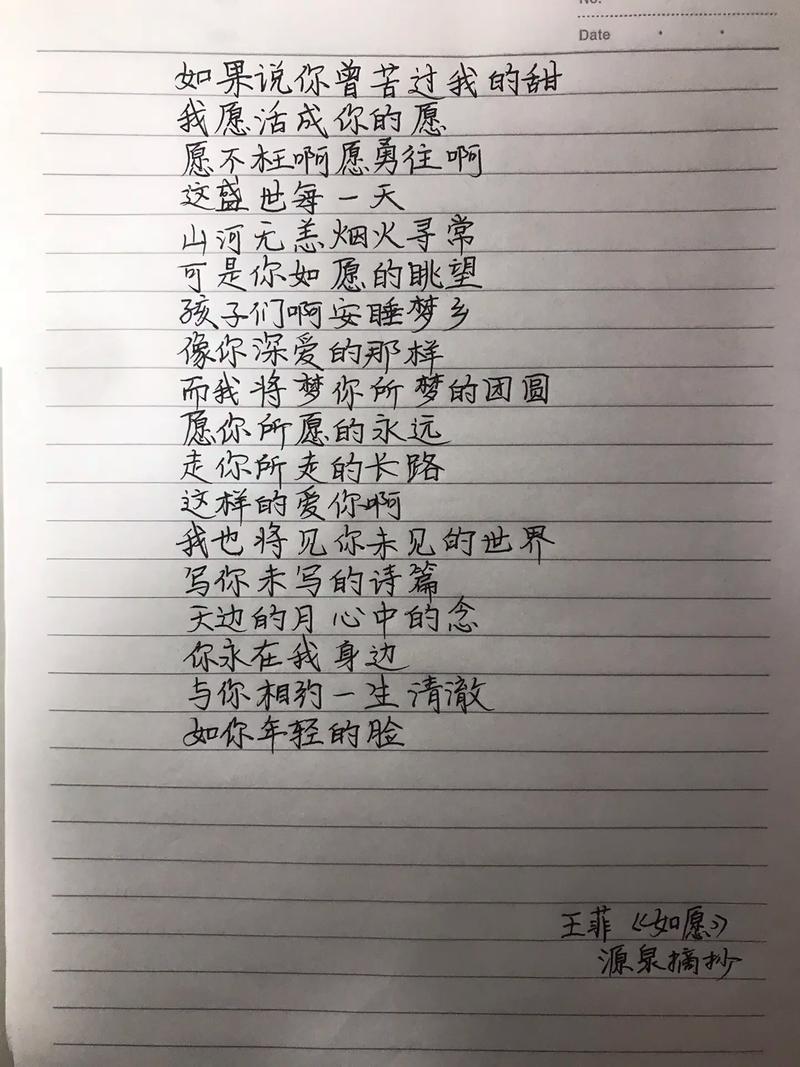 No.
Date
如果说你曾苦过我的甜
我愿活成你的愿
愿不枉啊愿勇往啊
这盛世每一天
山河无恙烟火寻常
可是你如愿的眺望
孩子们啊安睡梦乡
像你深爱的那样
而我将梦你所梦的团圆
愿你所愿的永远
走你所走的长路
这样的爱你啊
我也将见你未见的世界
写你未写的诗篇
天边的月心中的念
你永在我身边
与你相约一生清澈
如你年轻的脸
王菲《如愿》
源泉摘抄